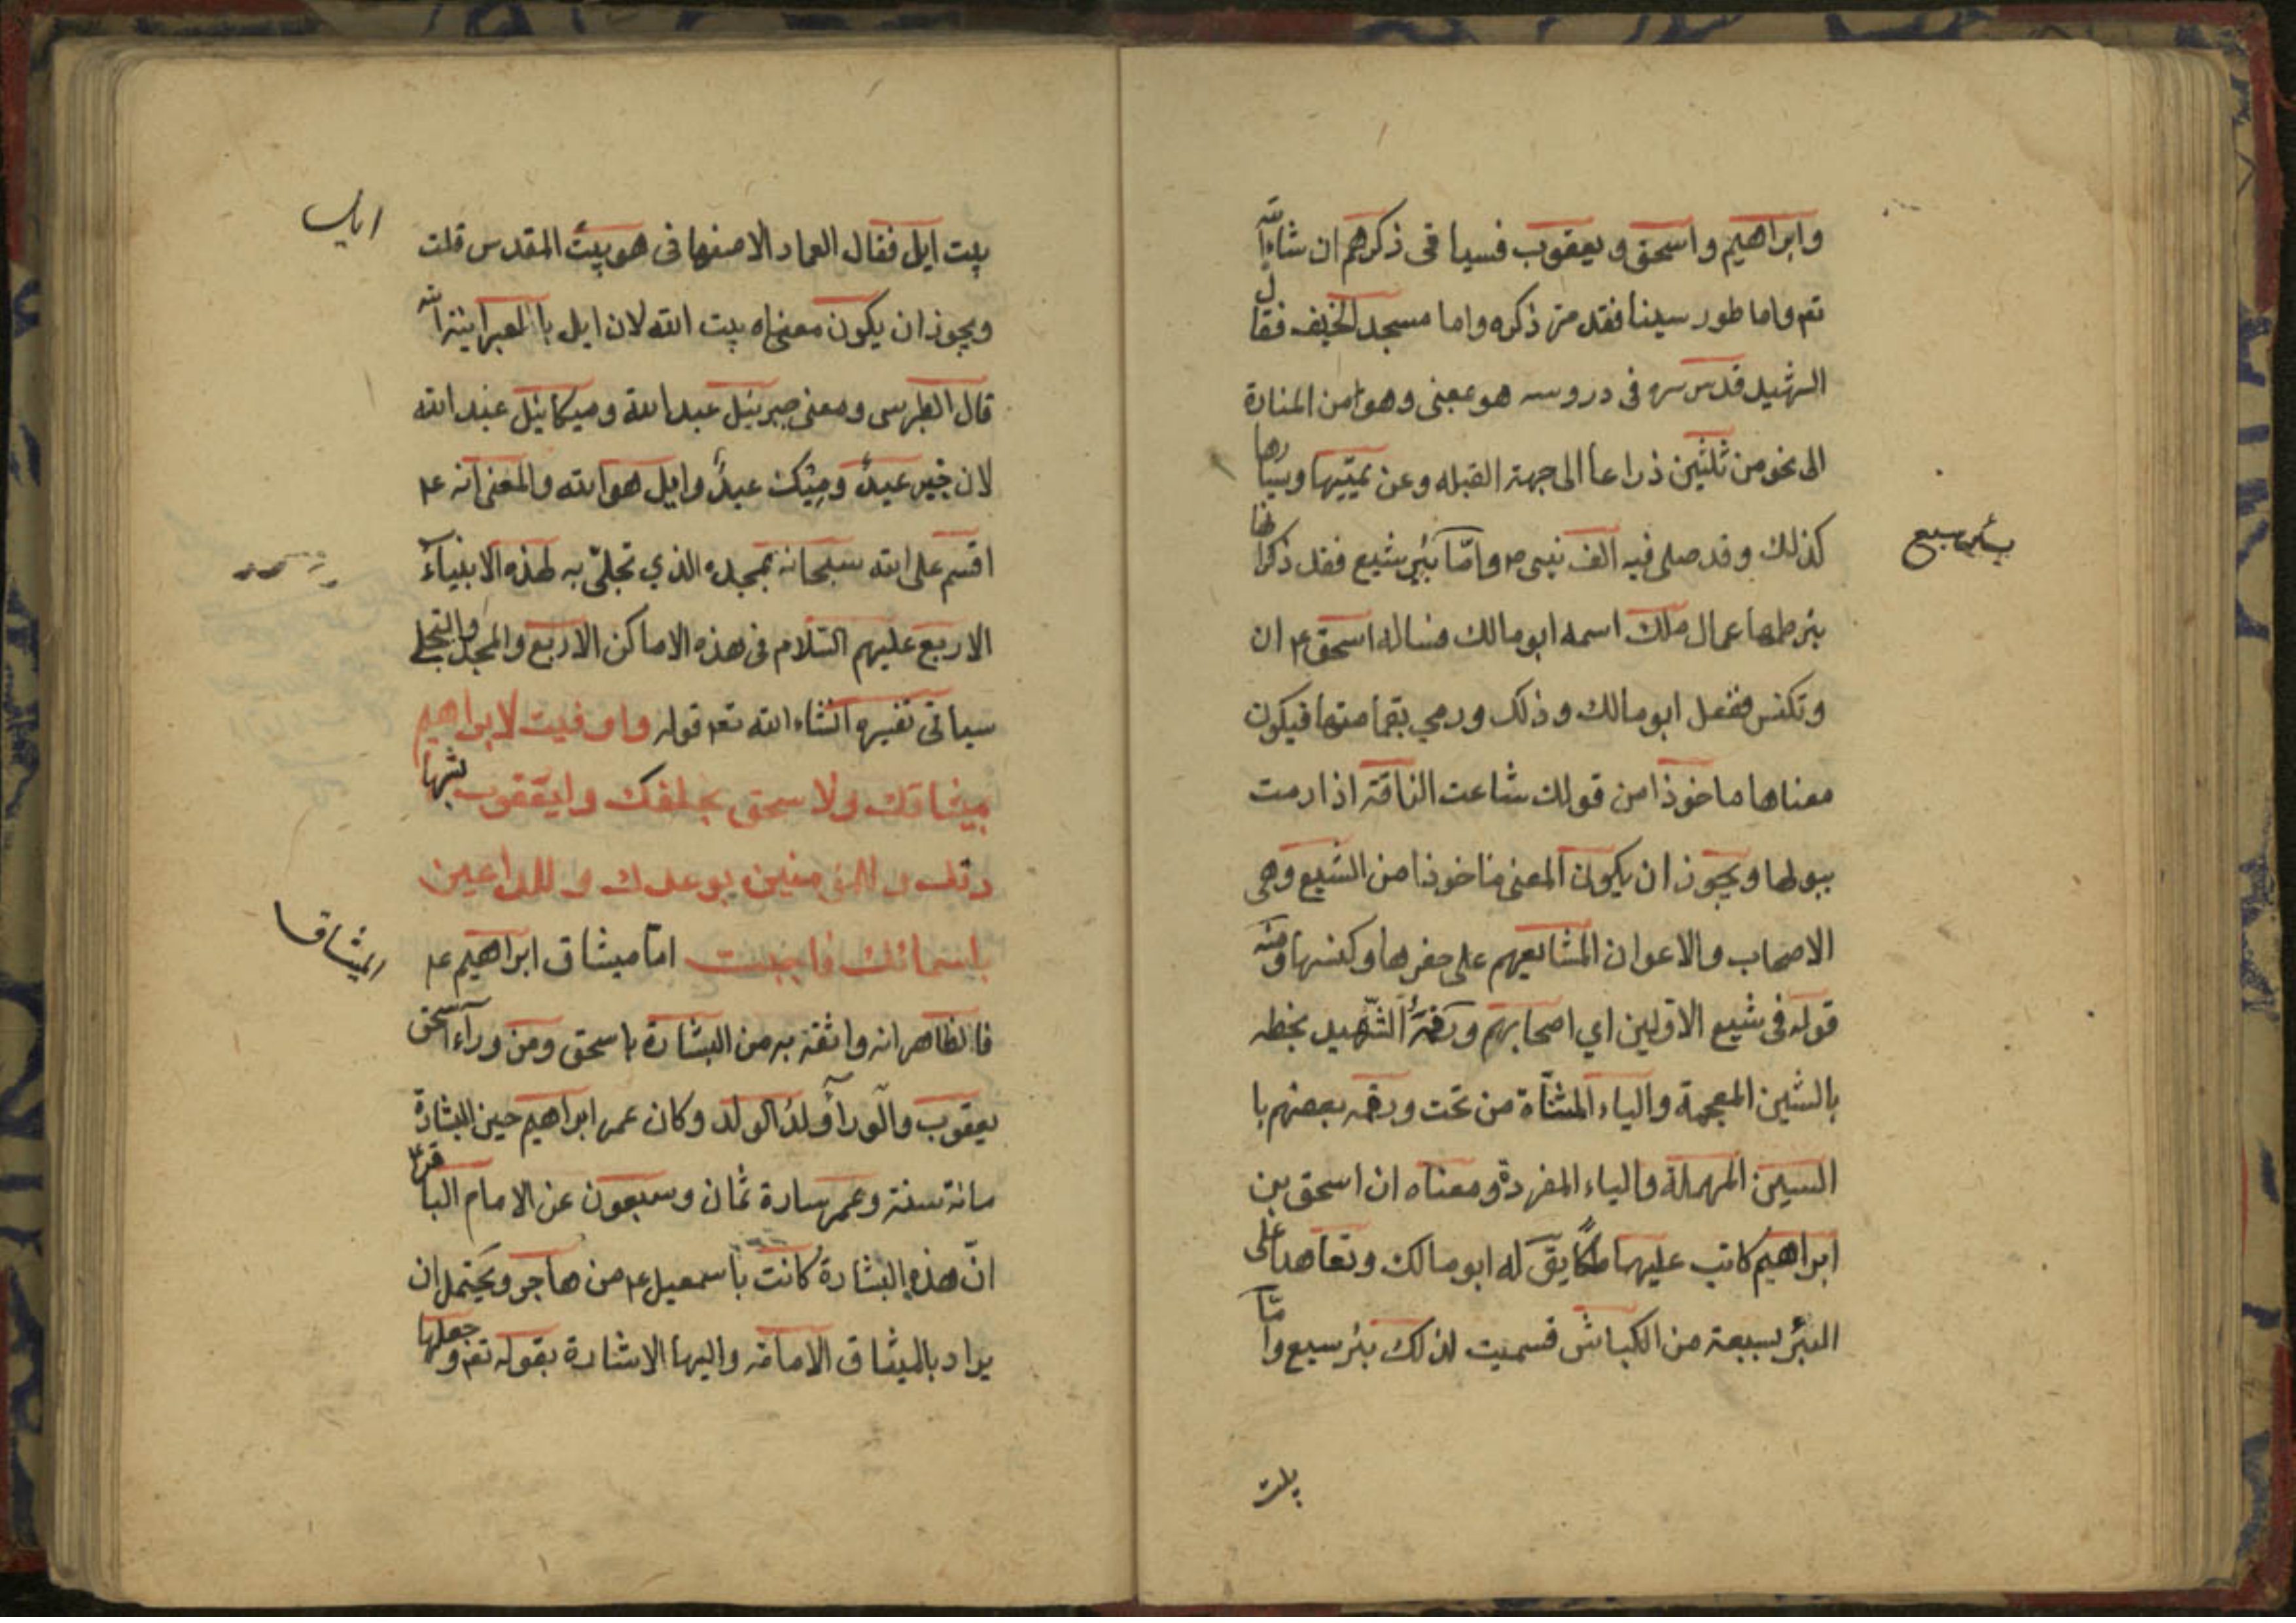 وابراهيم واسحق ويعقوب فسياقى ذكرهم ان شاء الله
تعم واما طور سينا فقد مر ذكره واما مسجد الخيف فقال
الشهيد قدس سره فى دروسه هو بمنى وهو من المنارة
الى نحو من ثلثين ذراعا الى جهة القبله وعن يمينها ويسارها
كذلك وقد صلى فيه الف نبى م وامّا بئر شيع فقد ذكرانها
بئر طمها عمال ملك اسمه ابو مالك فساله اسحق ع ان
وتكنس ففعل ابو مالك وذلك ورمي بقمامتها فيكون
معناها ماخوذا من قولك شاعت الناقة اذا رمت
ببولها ويجوز ان يكون المعنى ماخوذا من الشيع وهى
الاصحاب والاعوان لمشايعهم على حفرها وكنسها ومنه
قوله فى شيع الاولين اي اصحابهم و الشهيد بخطه
بالشين المعجمة والياء المثناة من تحت و بعضهم با
السين المهملة والياء المفردة ومعناه ان اسحق بن
ابراهيم كاتب عليها ملكا يق له ابو مالك وتعاهدا على
البئر بسبعة من الكباش فسميت لذلك بئر سبع وامّا
بئر سبع
بيت
ايل
بيت ايل فقال العماد الاصفهانى هو بيت المقدس قلت
ويجوز ان يكون معناه بيت الله لان ايل بالعبرانية الله
قال الطبرسى ومعنى جبرئيل عبد الله وميكائيل عبيد الله
لان جبر عبد وميك عبيد وايل هو الله والمعنى انه ع
اقسم على الله سبحانه بمجده الذي تجلى به لهذه الانبياء
الاربع عليهم السّلام فى هذه الاماكن الاربع والمجد والتجلي
سياتى تفسيره انشاء الله تعم قوله واوفيت لابراهيم
بميثاقك ولاسحق بحلفك وليعقوب بشها
دتك وللمؤمنين بوعدك وللداعين
باسمائك فاجبت امّا ميثاق ابراهيم ع
الميثاق
فالظاهر انه واثقه به من البشارة باسحق ومن وراء اسحق
يعقوب والوراء ولد الولد وكان عمر ابراهيم حين البشارة
مائة سنة وعمر سارة ثمان وسبعون عن الامام الباقر ع
انّ هذه البشارة كانت باسمعيل ع من هاجر ويحتمل ان
يراد بالميثاق الامامة واليها الاشارة بقوله تعم وجعلها